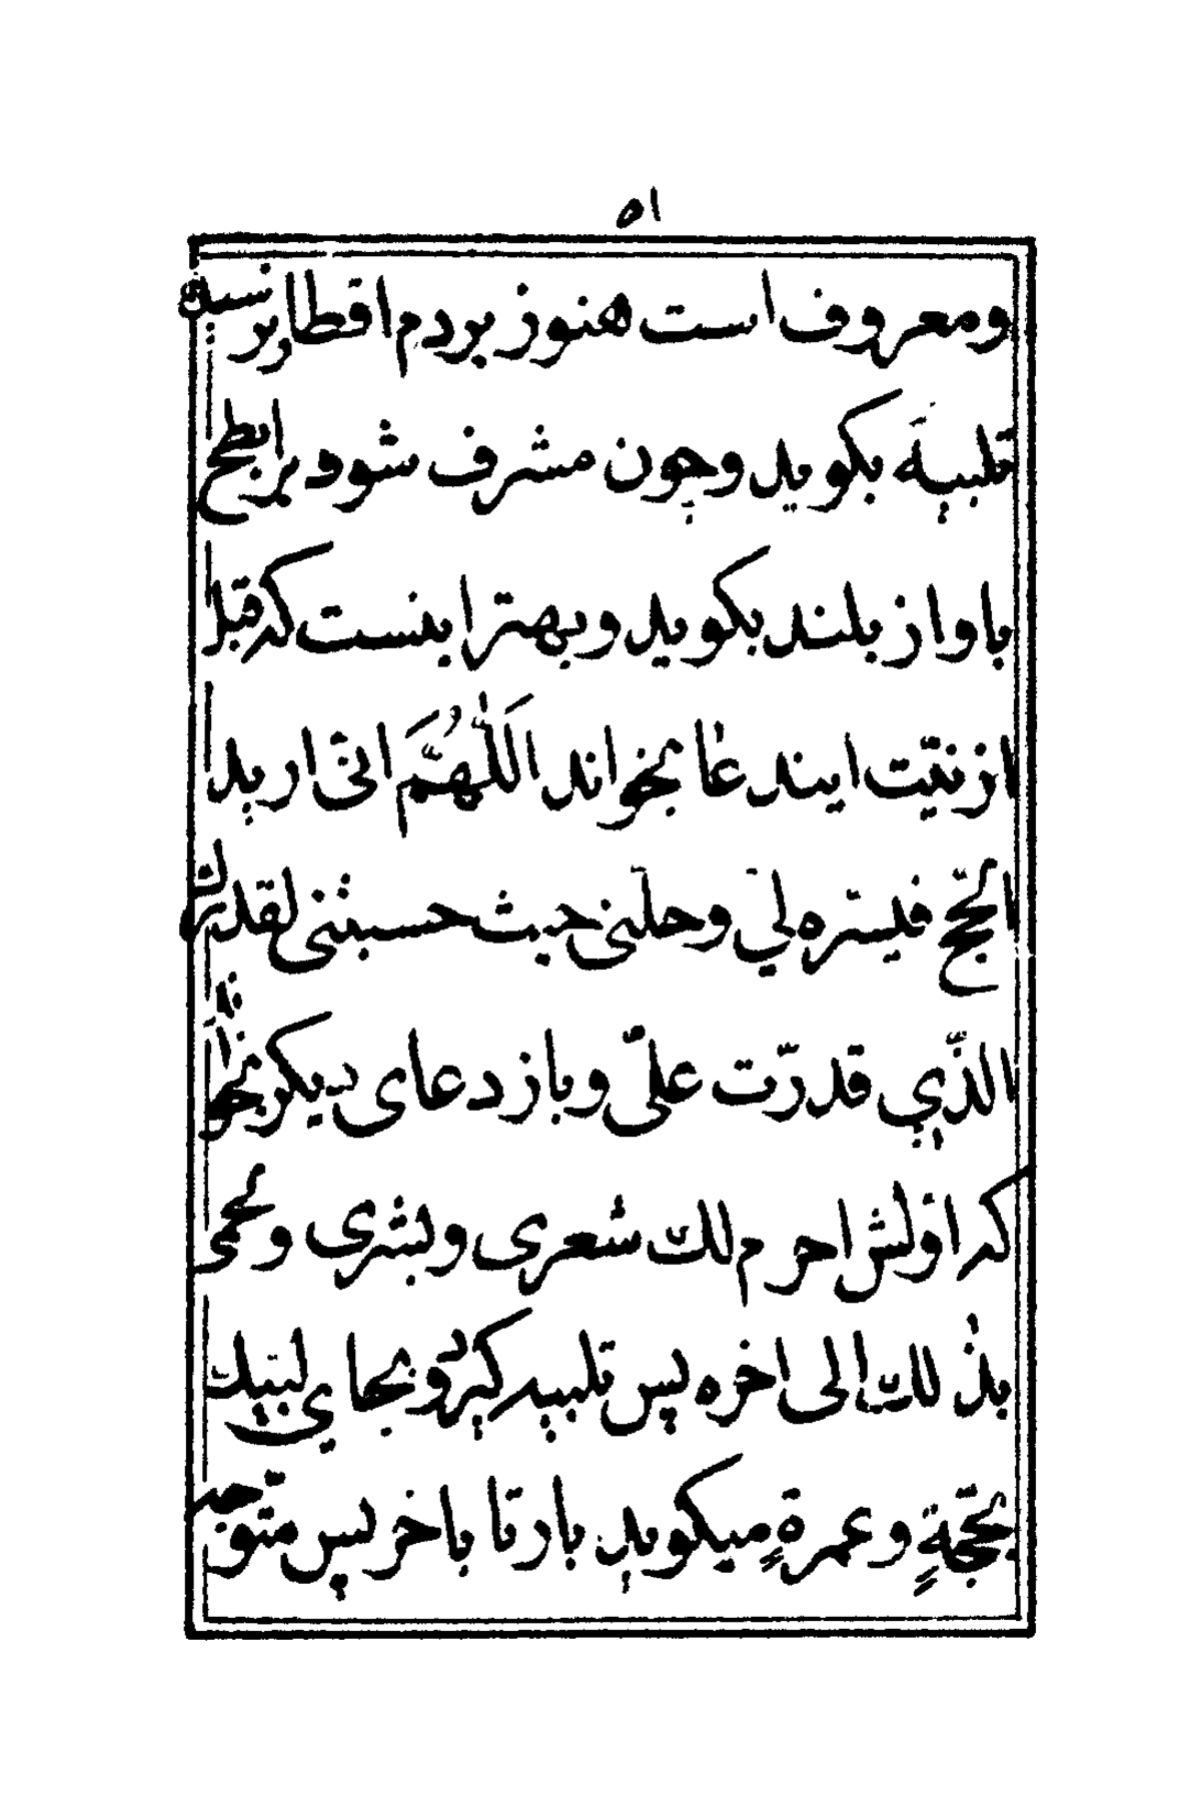 ۵۱
ومعروف است هنوز بردم اقطا برنسبك
تلبیه بکوید وچون مشرف شود بر ابطح
باواز بلند بکوید وبهتر اینست که قبل
از نیّت ایندعا بخواند اَللّٰهُمَّ انّی ارید
الحجّ فیسّره لي وحلّنی حیث حبستنی لقدرك
الذّي قدرّت علیّ وباز دعای دیکر بخواند
که اوّلش احرم لك شعری وبشری ولحمی
بذٰلك الی اخره پس تلبیه کیرد وبجاي لبیك
بحجّةٍ وعمرةٍ میکوید بار تا باخر پس متوجه